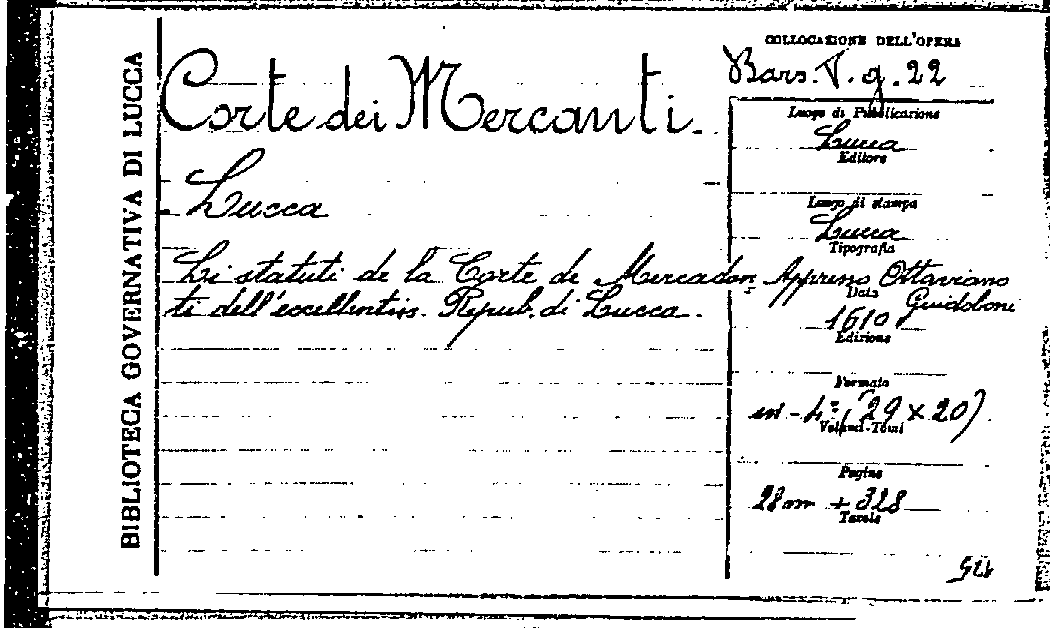 BIBLIOTECA GOVERNATIVA DI LUCCA
Corte dei Mercanti.
Lucca
Li statuti de la Corte de Mercadan
ti dell'eccellentiss. Repub. di Lucca.
COLLOCAZIONE DELL'OPERA
Bars. T. g. 22
Luogo di Pubblicazione
Lucca
Editore
Luogo di stampa
Lucca
Tipografia
Appreso Ottaviano
Guidoboni
Data
1610
Edizione
Formato
in-4º (29 x 20)
Volumi-Tomi
Pagine
28 nn + 328
Tavole